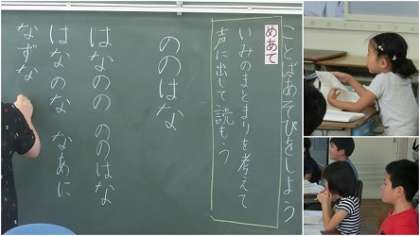 ことばあそびをしよう
めあて
いみのまとまりを考えて
声に出して読もう
ののはな
はなのの ののはな
はなのな なあに
なずな